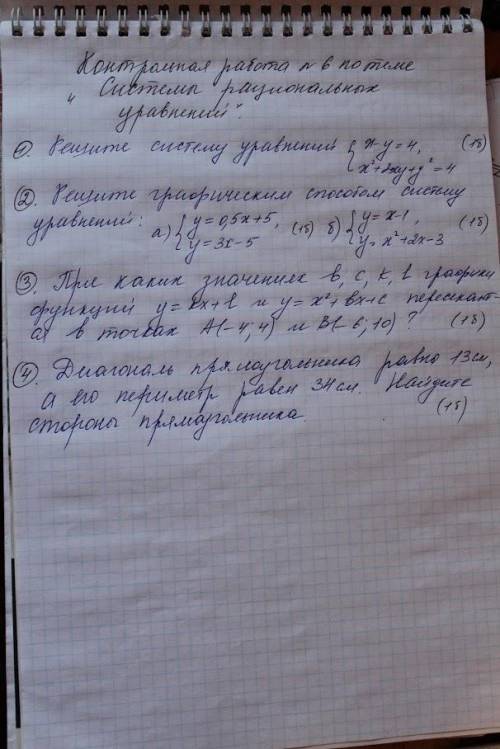 Контрольная работа №6 по теме
„ Системы рациональных
уравнений".
①. Решите систему уравнений { x-y=4, (1б)
x²+2xy+y²=4
②. Решите графическим способом систему
уравнений: а) { y=0,5x+5, (1б) б) { y=x-1, (1б)
y=3x-5 y=x²+2x-3
③. При каких значениях b, c, k, l графики
функций y=kx+l и y=x²+bx+c пересекают-
ся в точках A(-4;4) и B(-6;10)? (1б)
④. Диагональ прямоугольника равно 13см,
а его периметр равен 34см. Найдите
стороны прямоугольника. (1б)